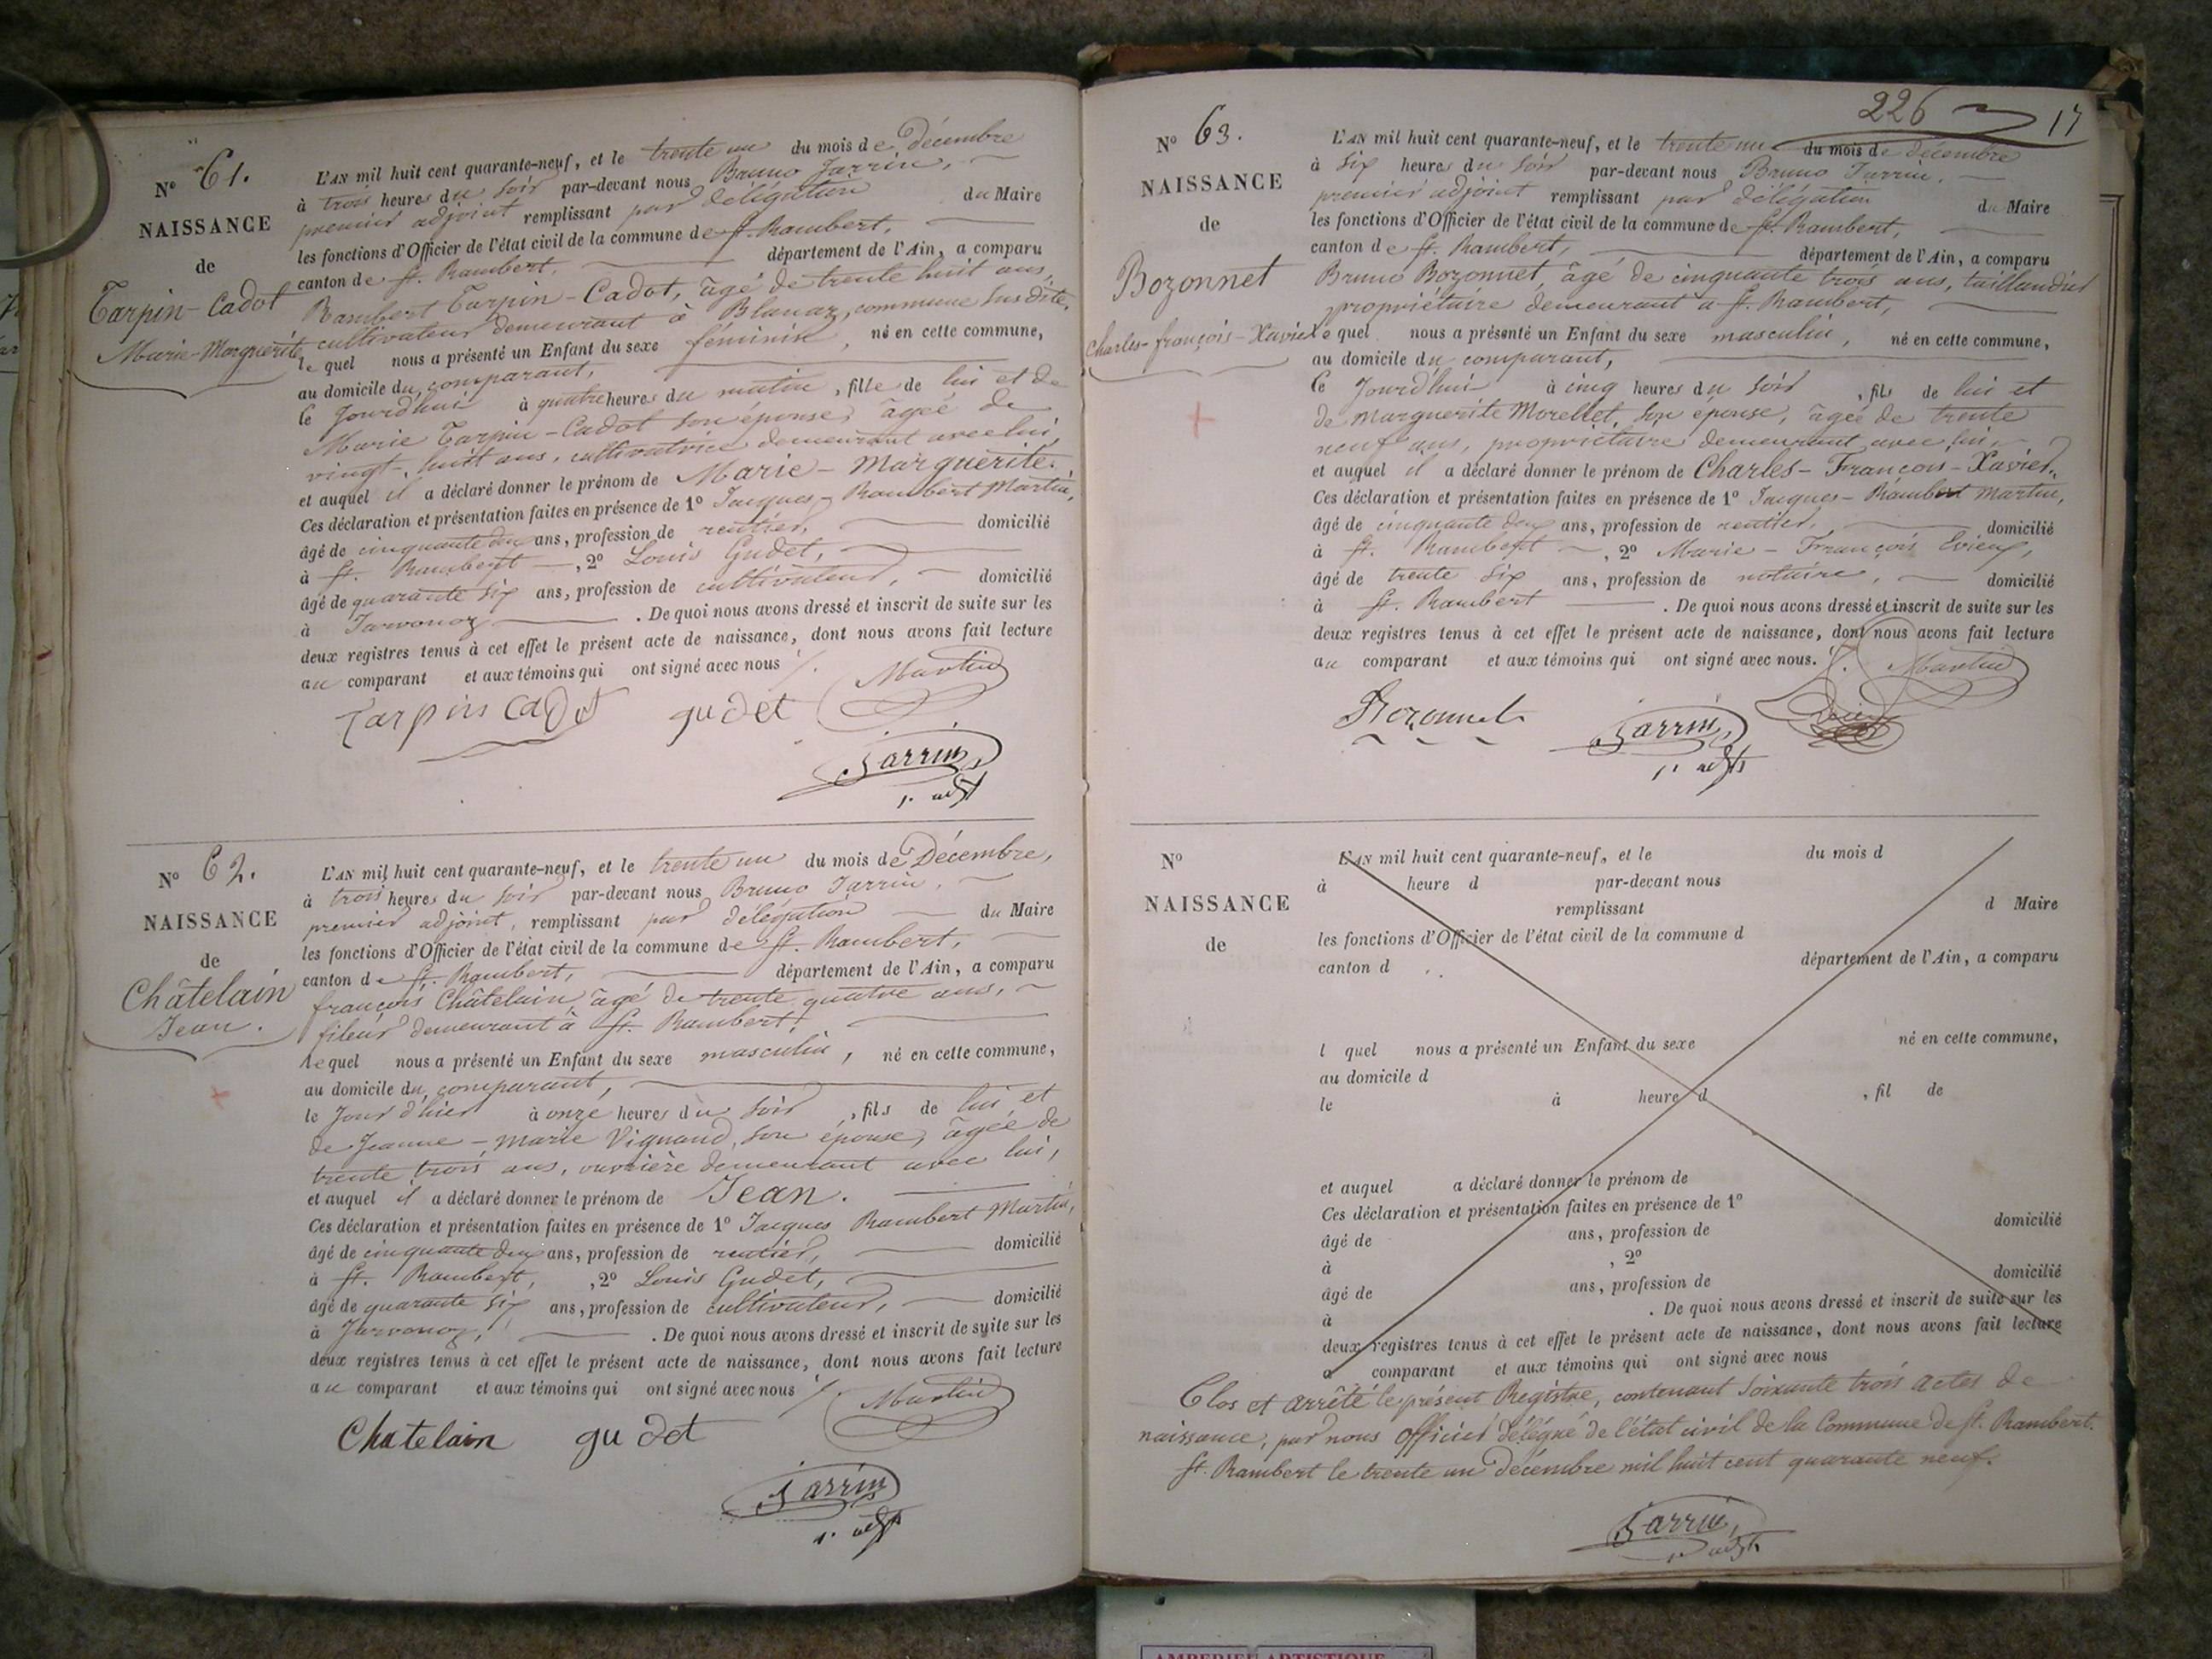 N° 61.
NAISSANCE
de
Tarpin-Cadot
Marie-Marguerite
L'AN mil huit cent quarante-neuf, et le trente un du mois de Décembre
à trois heures du soir par-devant nous Bruno Jarrin,
premier adjoint remplissant par délégation du Maire
les fonctions d'Officier de l'état civil de la commune de St. Rambert,
canton de St. Rambert, département de l'Ain, a comparu
Rambert Tarpin-Cadot, âgé de trente huit ans,
cultivateur demeurant à Blanaz, commune susdite,
lequel nous a présenté un Enfant du sexe féminin, né en cette commune,
au domicile du comparant,
le Jourd'hui à quatre heures du matin, fille de lui et de
Marie Tarpin-Cadot son épouse, âgée de
vingt-huit ans, cultivatrice demeurant avec lui,
et auquel il a déclaré donner le prénom de Marie-Marguerite.
Ces déclaration et présentation faites en présence de 1° Jacques-Rambert Martin,
âgé de cinquante deux ans, profession de rentier, domicilié
à St. Rambert, 2° Louis Gudet,
âgé de quarante six ans, profession de cultivateur, domicilié
à Javornoz . De quoi nous avons dressé et inscrit de suite sur les
deux registres tenus à cet effet le présent acte de naissance, dont nous avons fait lecture
au comparant et aux témoins qui ont signé avec nous
Martin
Tarpin Cadot gudet
Jarrin
1. adjt
N° 62.
NAISSANCE
de
Châtelain
Jean.
L'AN mil huit cent quarante-neuf, et le trente un du mois de Décembre,
à trois heures du soir par-devant nous Bruno Jarrin,
premier adjoint, remplissant par délégation du Maire
les fonctions d'Officier de l'état civil de la commune de St. Rambert,
canton de St. Rambert, département de l'Ain, a comparu
françois Châtelain, âgé de trente quatre ans,
fileur demeurant à St. Rambert,
lequel nous a présenté un Enfant du sexe masculin, né en cette commune,
au domicile du comparant,
le Jour d'hier à onze heures du soir, fils de lui et
de Jeanne-Marie Vignand, son épouse, âgée de
trente trois ans, ouvrière demeurant avec lui,
et auquel il a déclaré donner le prénom de Jean.
Ces déclaration et présentation faites en présence de 1° Jacques Rambert Martin,
âgé de cinquante deux ans, profession de rentier, domicilié
à St. Rambert, 2° Louis Gudet,
âgé de quarante six ans, profession de cultivateur, domicilié
à Javornoz, . De quoi nous avons dressé et inscrit de suite sur les
deux registres tenus à cet effet le présent acte de naissance, dont nous avons fait lecture
au comparant et aux témoins qui ont signé avec nous
Martin
Chatelain gudet
Jarrin
1. adjt
226 17
N° 63.
NAISSANCE
de
Bozonnet
Charles-françois-Xavier
L'AN mil huit cent quarante-neuf, et le trente un du mois de décembre
à six heures du soir par-devant nous Bruno Jarrin,
premier adjoint remplissant par délégation du Maire
les fonctions d'Officier de l'état civil de la commune de St. Rambert,
canton de St. Rambert, département de l'Ain, a comparu
Bruno Bozonnet, âgé de cinquante trois ans, taillandier
propriétaire demeurant à St. Rambert,
lequel nous a présenté un Enfant du sexe masculin, né en cette commune,
au domicile du comparant,
le Jourd'hui à cinq heures du soir, fils de lui et
de Marguerite Morellet, son épouse, âgée de trente
neuf ans, propriétaire demeurant avec lui,
et auquel il a déclaré donner le prénom de Charles-François-Xavier.
Ces déclaration et présentation faites en présence de 1° Jacques-Rambert Martin,
âgé de cinquante deux ans, profession de rentier, domicilié
à St. Rambert, 2° Marie-François Evieux,
âgé de trente six ans, profession de notaire, domicilié
à St. Rambert . De quoi nous avons dressé et inscrit de suite sur les
deux registres tenus à cet effet le présent acte de naissance, dont nous avons fait lecture
au comparant et aux témoins qui ont signé avec nous.
Martin
Bozonnet Jarrin
1. adjt
N°
NAISSANCE
de
L'AN mil huit cent quarante-neuf, et le du mois d
à heure d par-devant nous
remplissant d Maire
les fonctions d'Officier de l'état civil de la commune d
canton d département de l'Ain, a comparu
l quel nous a présenté un Enfant du sexe né en cette commune,
au domicile d
le à heure d , fil de
et auquel a déclaré donner le prénom de
Ces déclaration et présentation faites en présence de 1°
âgé de ans, profession de domicilié
à , 2°
âgé de ans, profession de domicilié
à . De quoi nous avons dressé et inscrit de suite sur les
deux registres tenus à cet effet le présent acte de naissance, dont nous avons fait lecture
a comparant et aux témoins qui ont signé avec nous
Clos et arrêté le présent Registre, contenant soixante trois actes de
naissance, par nous officier délégué de l'état civil de la Commune de St. Rambert.
St. Rambert le trente un décembre mil huit cent quarante neuf.
Jarrin
1. adjt
AMBERIEU ARTISTIQUE